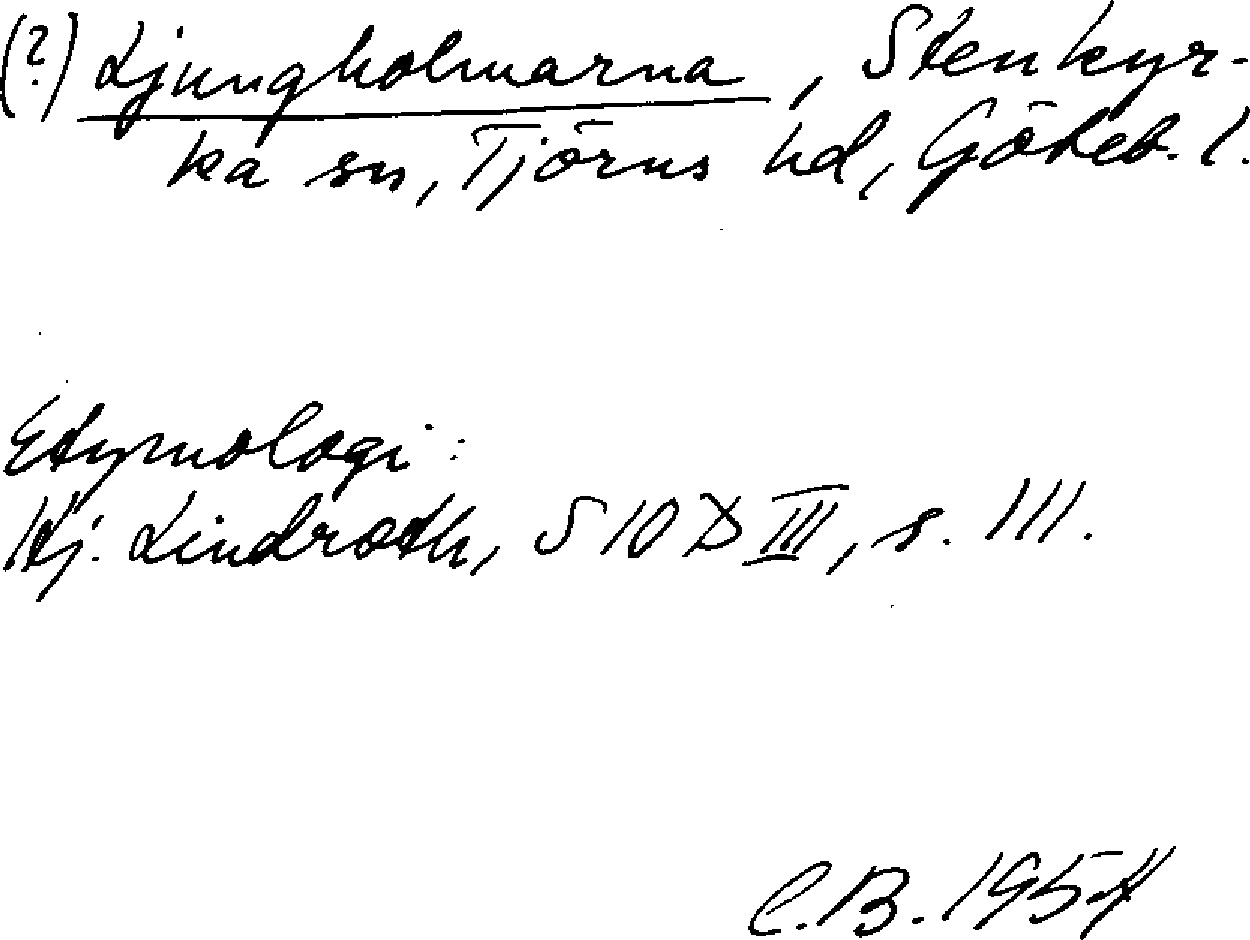 (?) Ljungholmarna, Stenkyr-
ka sn, Tjörns hd, Göteb. l.
Etymologi:
Hj. Lindroth, SIOD III, s. 111.
C.B. 1954